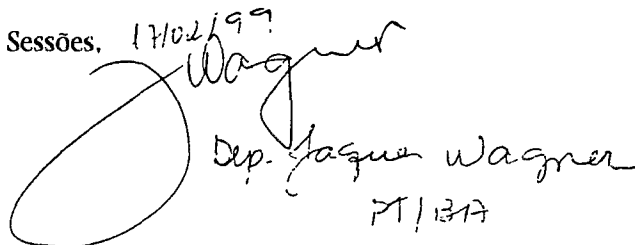 Sessões, 17/02/99
JWagner
Dep. Jaques Wagner
PT/BA